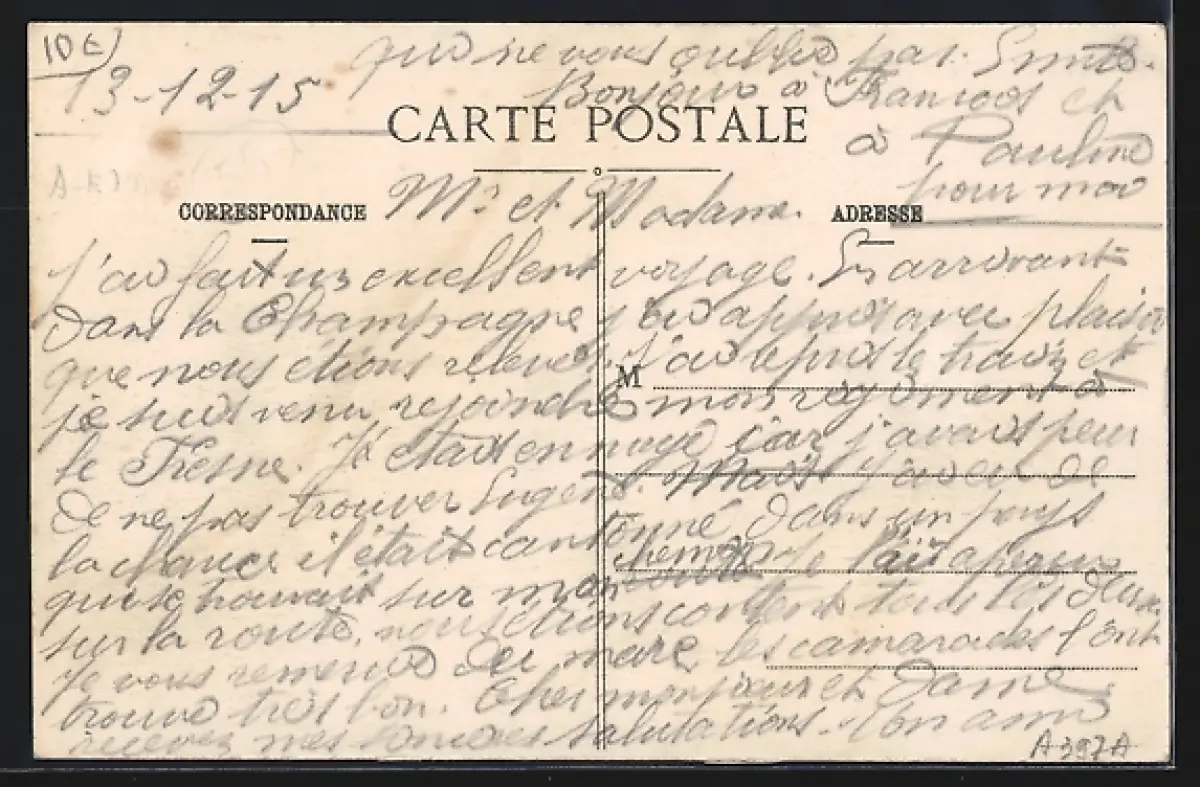 10 €
13-12-15
qui ne vous oublie pas.
Bonjour à Francois et
à Pauline
pour moi
CARTE POSTALE
CORRESPONDANCE
ADRESSE
Mr et Madame.
J'ai fait un excellent voyage. En arrivant
dans la Champagne j'ai appris avec plaisir
que nous étions relevés. J'ai repris le train et
je suis venu rejoindre mon regiment à
le Fresne. J'étais ennuyé car j'avais peur
de ne pas trouver Eugene. Mais j'ai eu de
la chance il était cantonné dans un pays
qui se trouvait sur mon chemin je l'ai aperçu
sur la route, nous étions content tous les deux.
Je vous remercie du marc, les camarades l'ont
trouvé très bon. Cher monsieur et Dame
recevez mes sincères salutations. Ton ami
M
A397A